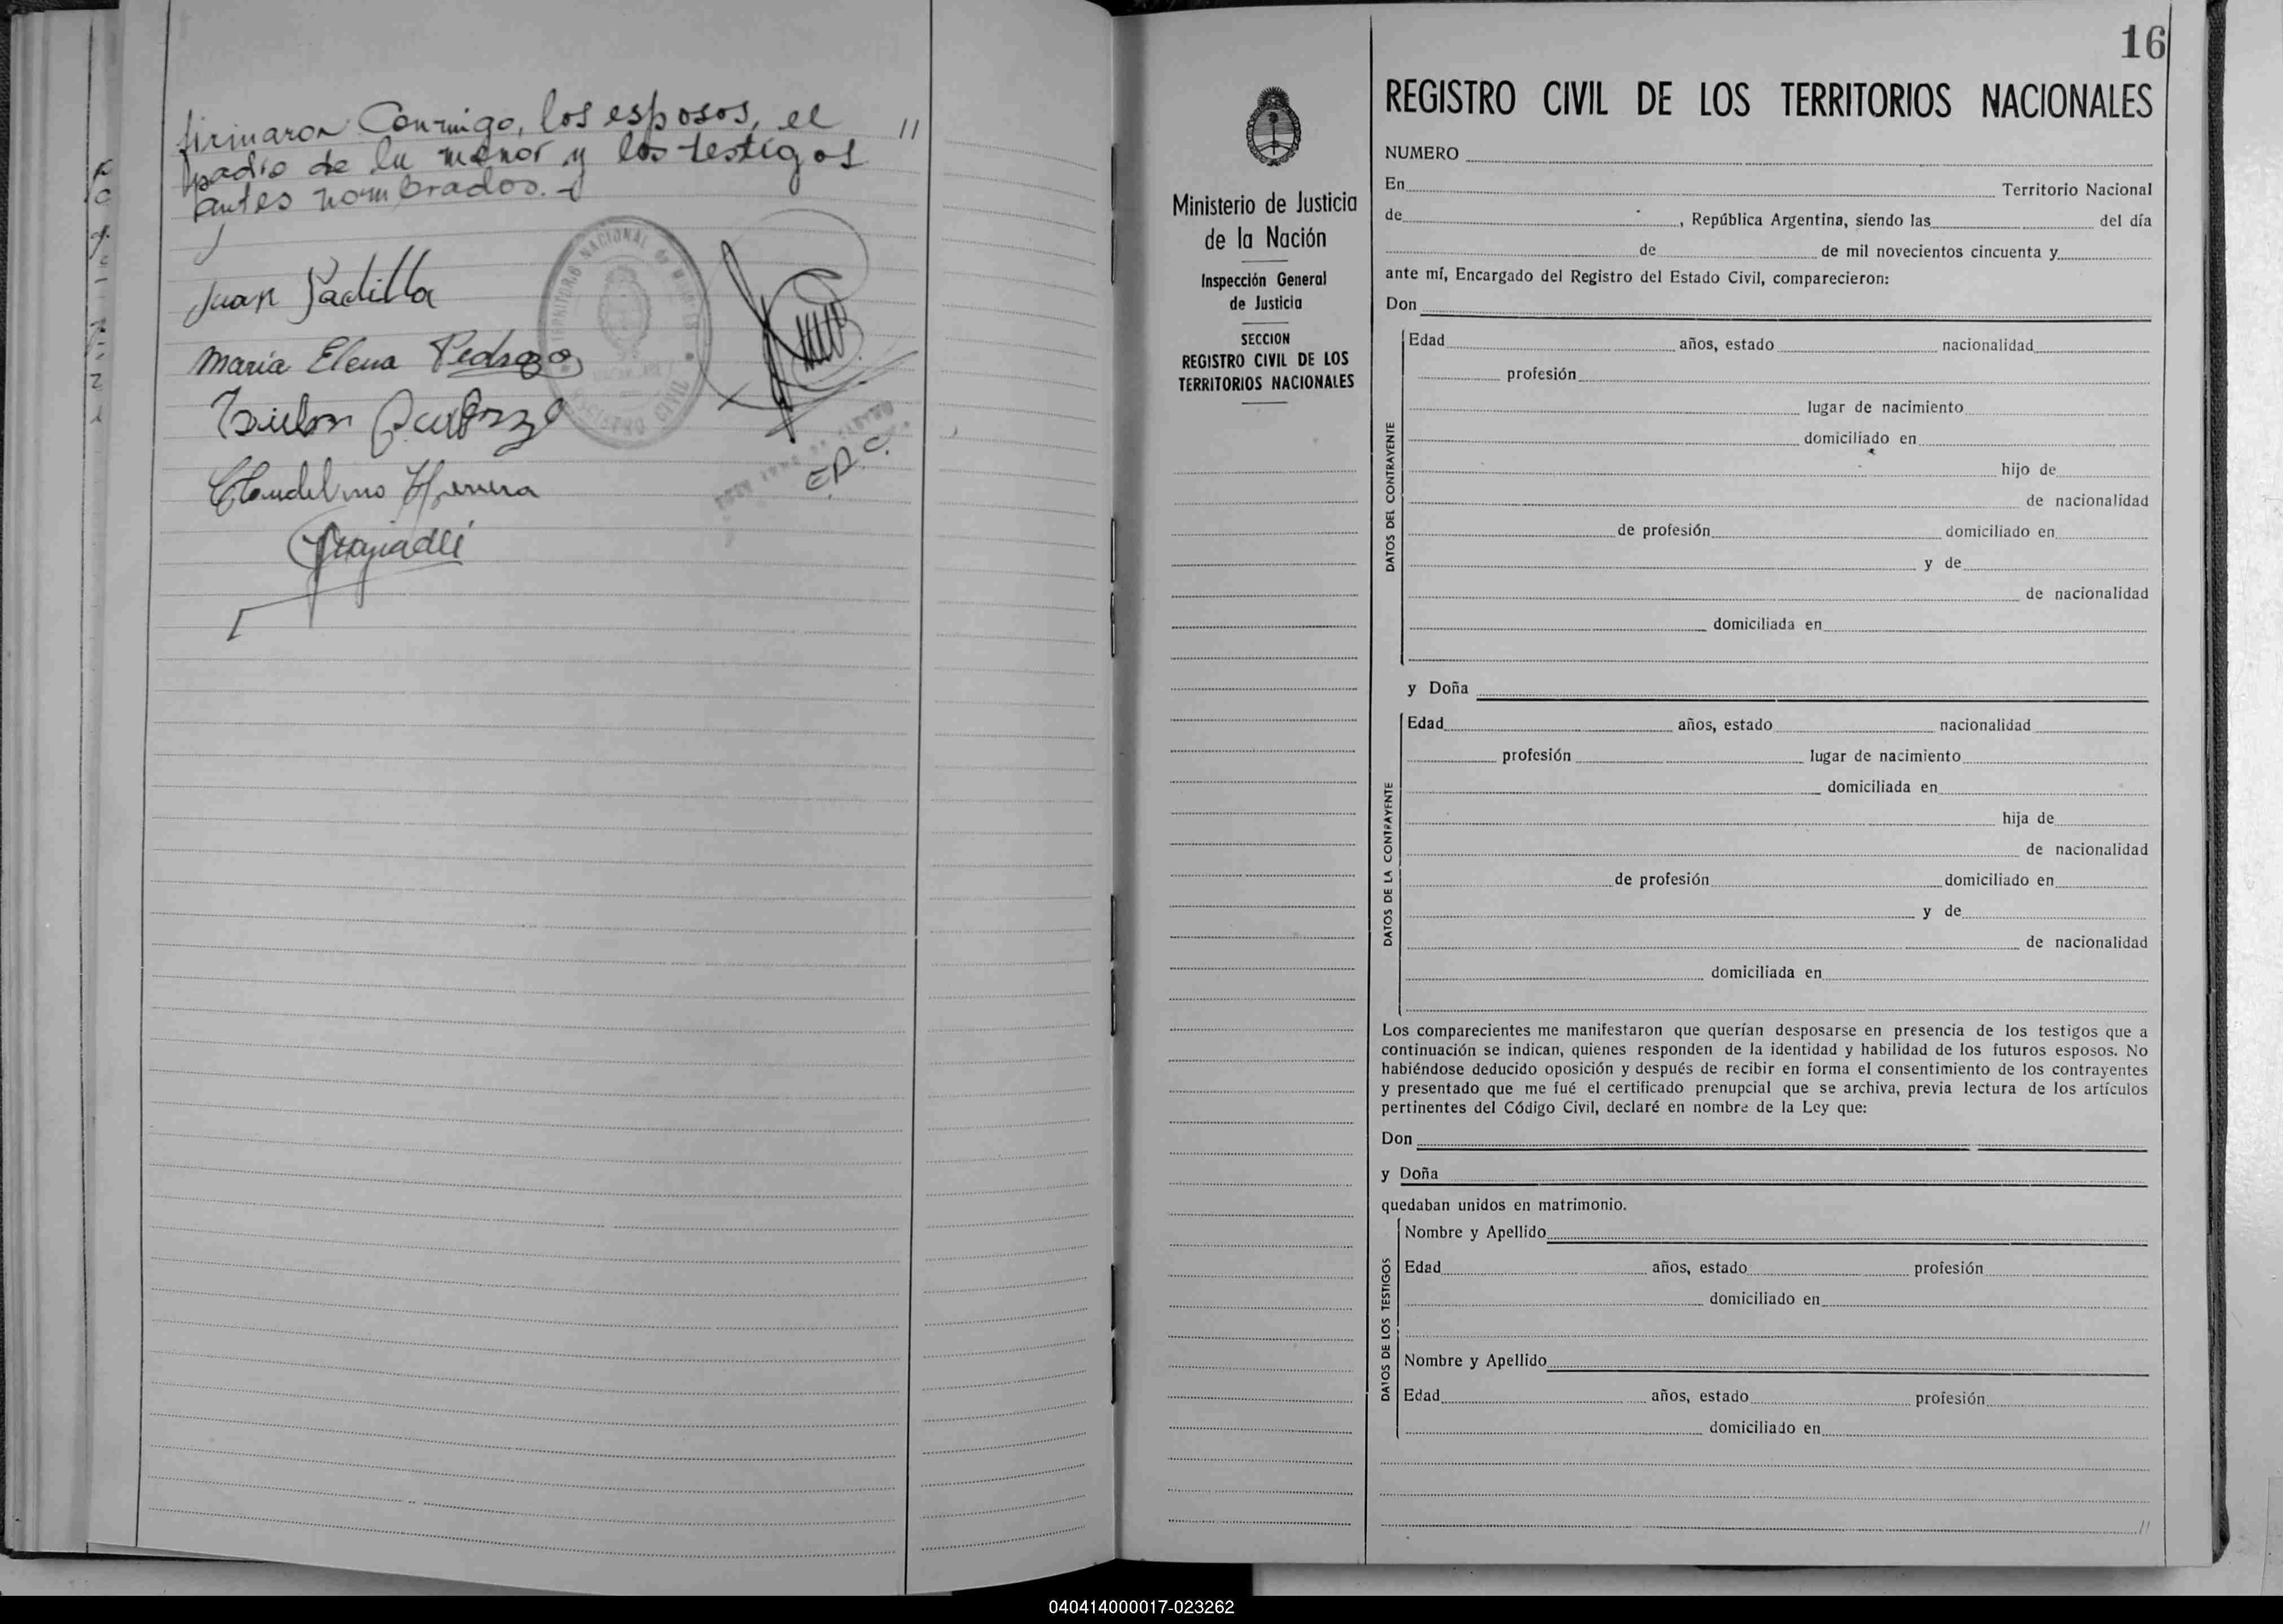 firmaron Conmigo, los esposos, el //
padre de la menor y los testigos
antes nombrados.-
Juan Padilla
Maria Elena Pedrozo
Claudelino Herrera
TERRITORIO NACIONAL DE
REGISTRO CIVIL
16
Ministerio de Justicia
de la Nación
Inspección General
de Justicia
SECCION
REGISTRO CIVIL DE LOS
TERRITORIOS NACIONALES
REGISTRO CIVIL DE LOS TERRITORIOS NACIONALES
NUMERO
En Territorio Nacional
de , República Argentina, siendo las del día
de de mil novecientos cincuenta y
ante mí, Encargado del Registro del Estado Civil, comparecieron:
Don
DATOS DEL CONTRAYENTE
Edad años, estado nacionalidad
profesión
lugar de nacimiento
domiciliado en
hijo de
de nacionalidad
de profesión domiciliado en
y de
de nacionalidad
domiciliada en
y Doña
DATOS DE LA CONTRAYENTE
Edad años, estado nacionalidad
profesión lugar de nacimiento
domiciliada en
hija de
de nacionalidad
de profesión domiciliado en
y de
de nacionalidad
domiciliada en
Los comparecientes me manifestaron que querían desposarse en presencia de los testigos que a
continuación se indican, quienes responden de la identidad y habilidad de los futuros esposos. No
habiéndose deducido oposición y después de recibir en forma el consentimiento de los contrayentes
y presentado que me fué el certificado prenupcial que se archiva, previa lectura de los artículos
pertinentes del Código Civil, declaré en nombre de la Ley que:
Don
y Doña
quedaban unidos en matrimonio.
DATOS DE LOS TESTIGOS
Nombre y Apellido
Edad años, estado profesión
domiciliado en
Nombre y Apellido
Edad años, estado profesión
domiciliado en
//
040414000017-023262